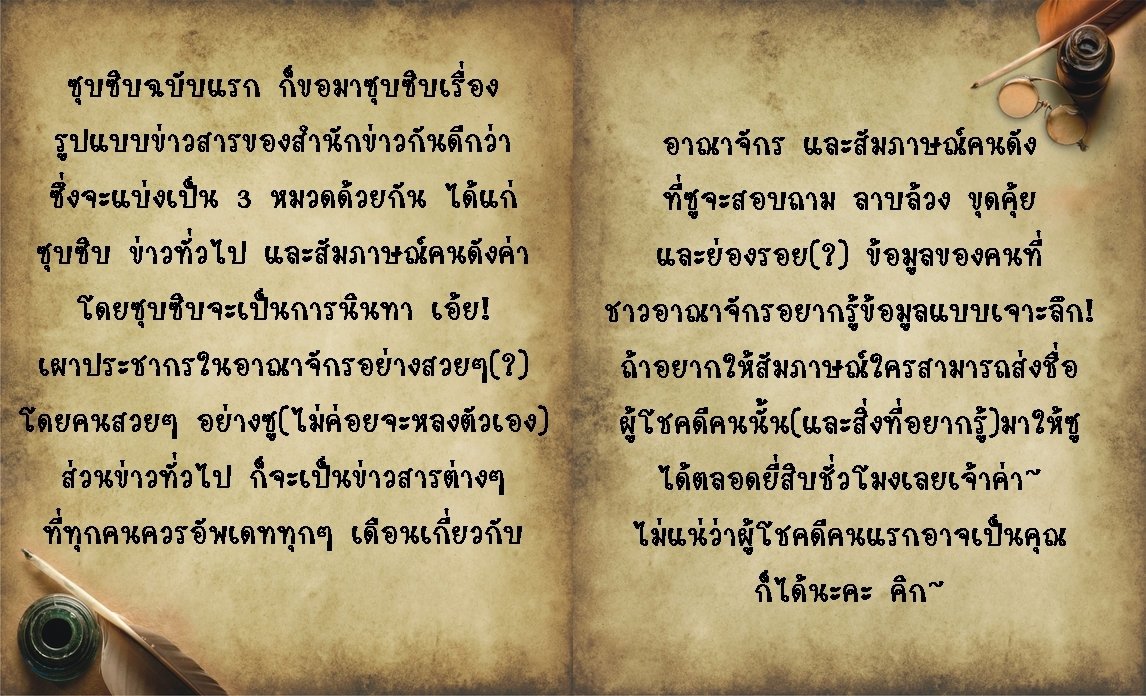 ซุบซิบฉบับแรก ก็ขอมาซุบซิบเรื่อง
รูปแบบข่าวสารของสำนักข่าวกันดีกว่า
ซึ่งจะแบ่งเป็น 3 หมวดด้วยกัน ได้แก่
ซุบซิบ ข่าวทั่วไป และสัมภาษณ์คนดังค่า
โดยซุบซิบจะเป็นการนินทา เอ้ย!
เผาประชากรในอาณาจักรอย่างสวยๆ(?)
โดยคนสวยๆ อย่างซู(ไม่ค่อยจะหลงตัวเอง)
ส่วนข่าวทั่วไป ก็จะเป็นข่าวสารต่างๆ
ที่ทุกคนควรอัพเดททุกๆ เดือนเกี่ยวกับ
อาณาจักร และสัมภาษณ์คนดัง
ที่ซูจะสอบถาม ลาบล้วง ขุดคุ้ย
และย่องรอย(?) ข้อมูลของคนที่
ชาวอาณาจักรอยากรู้ข้อมูลแบบเจาะลึก!
ถ้าอยากให้สัมภาษณ์ใครสามารถส่งชื่อ
ผู้โชคดีคนนั้น(และสิ่งที่อยากรู้)มาให้ซู
ได้ตลอดยี่สิบชั่วโมงเลยเจ้าค่า~
ไม่แน่ว่าผู้โชคดีคนแรกอาจเป็นคุณ
ก็ได้นะคะ คิก~